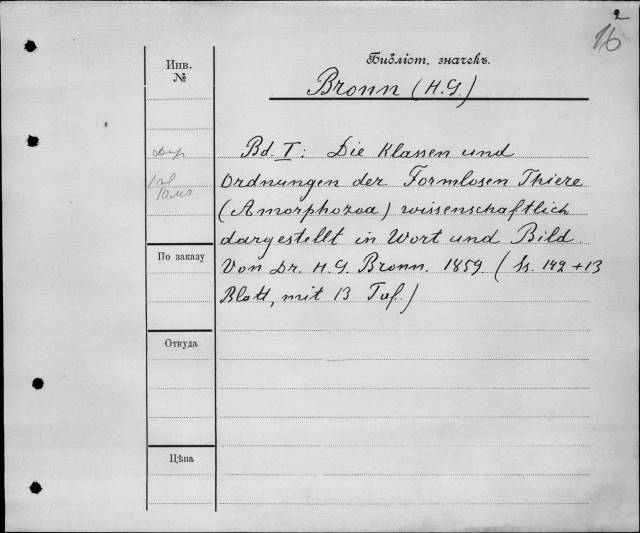 2
16
Инв.
№
Библіот. значекъ.
Bronn (H.G.)
Bd. I: Die Klassen und
Ordnungen der Formlosen Thiere
(Amorphozoa) wissenschaftlich
dargestellt in Wort und Bild.
Von Dr. H. G. Bronn. 1859. (Ss. 142 + 13
Blatt, mit 13 Taf.)
По заказу
Откуда
Цѣна